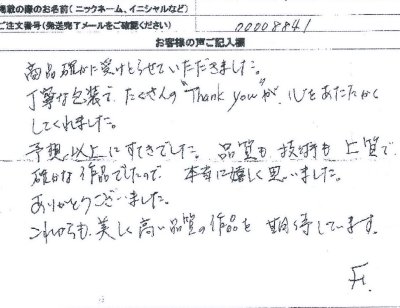 掲載の際のお名前(ニックネーム、イニシャルなど)
ご注文番号(発送完了メールをご確認ください) 00008841
お客様の声ご記入欄
商品確かに受けとらせていただきました。
丁寧な包装で、たくさんの"Thank you"が、心をあたたかく
してくれました。
予想以上にすてきでした。品質も技術も上質で
確かな作品でしたので、本当に嬉しく思いました。
ありがとうございました。
これからも、美しく高い品質の作品を期待しています。